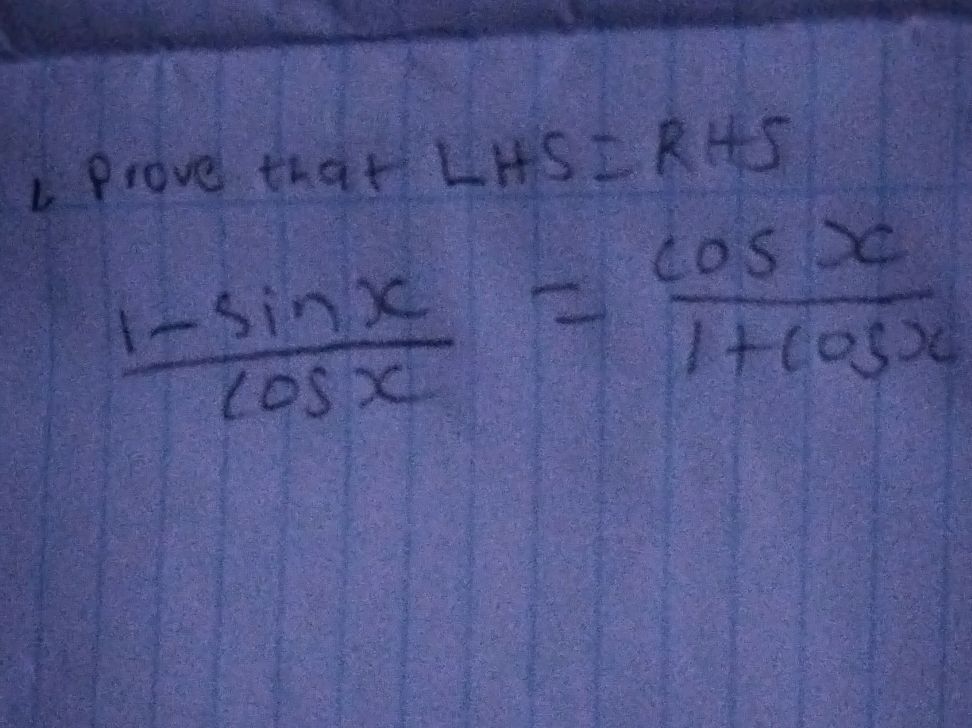 1. Prove that LHS = RHS
1 - sin x / cos x = cos x / 1 + cos x